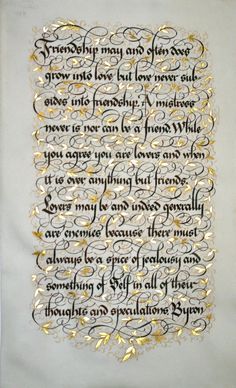 Friendship may and often does
grow into love but love never sub-
sides into friendship. A mistress
never is nor can be a friend. While
you agree you are lovers and when
it is over anything but friends.
Lovers may be and indeed generally
are enemies because there must
always be a spice of jealousy and
something of Self in all of their
thoughts and speculations. Byron